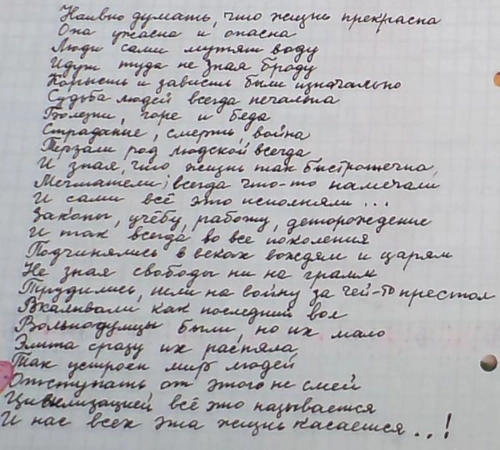 Наивно думать, что жизнь прекрасна
Она ужасна и опасна
Люди сами мутят воду
Идут туда не зная броду
Корысть и зависть были изначально
Судьба людей всегда печальна
Болезни, горе и беда
Страдание, смерть, война
Терзали род людской всегда
И зная, что жизнь так быстротечна,
Мечтатели, всегда что-то намечали
И сами всё это исполняли...
Законы, учёбу, работу, деторождение
И так всегда во все поколения
Подчинялись в веках вождям и царям
Не зная свободы ни на грамм
Трудились, шли на войну за чей-то престол
Вкалывали как последний вол
Вольнодумцы были, но их мало
Элита сразу их распяла,
Так устроен мир людей
Отступать от этого не смей
Цивилизацией всё это называется
И нас всех эта жизнь касается..!